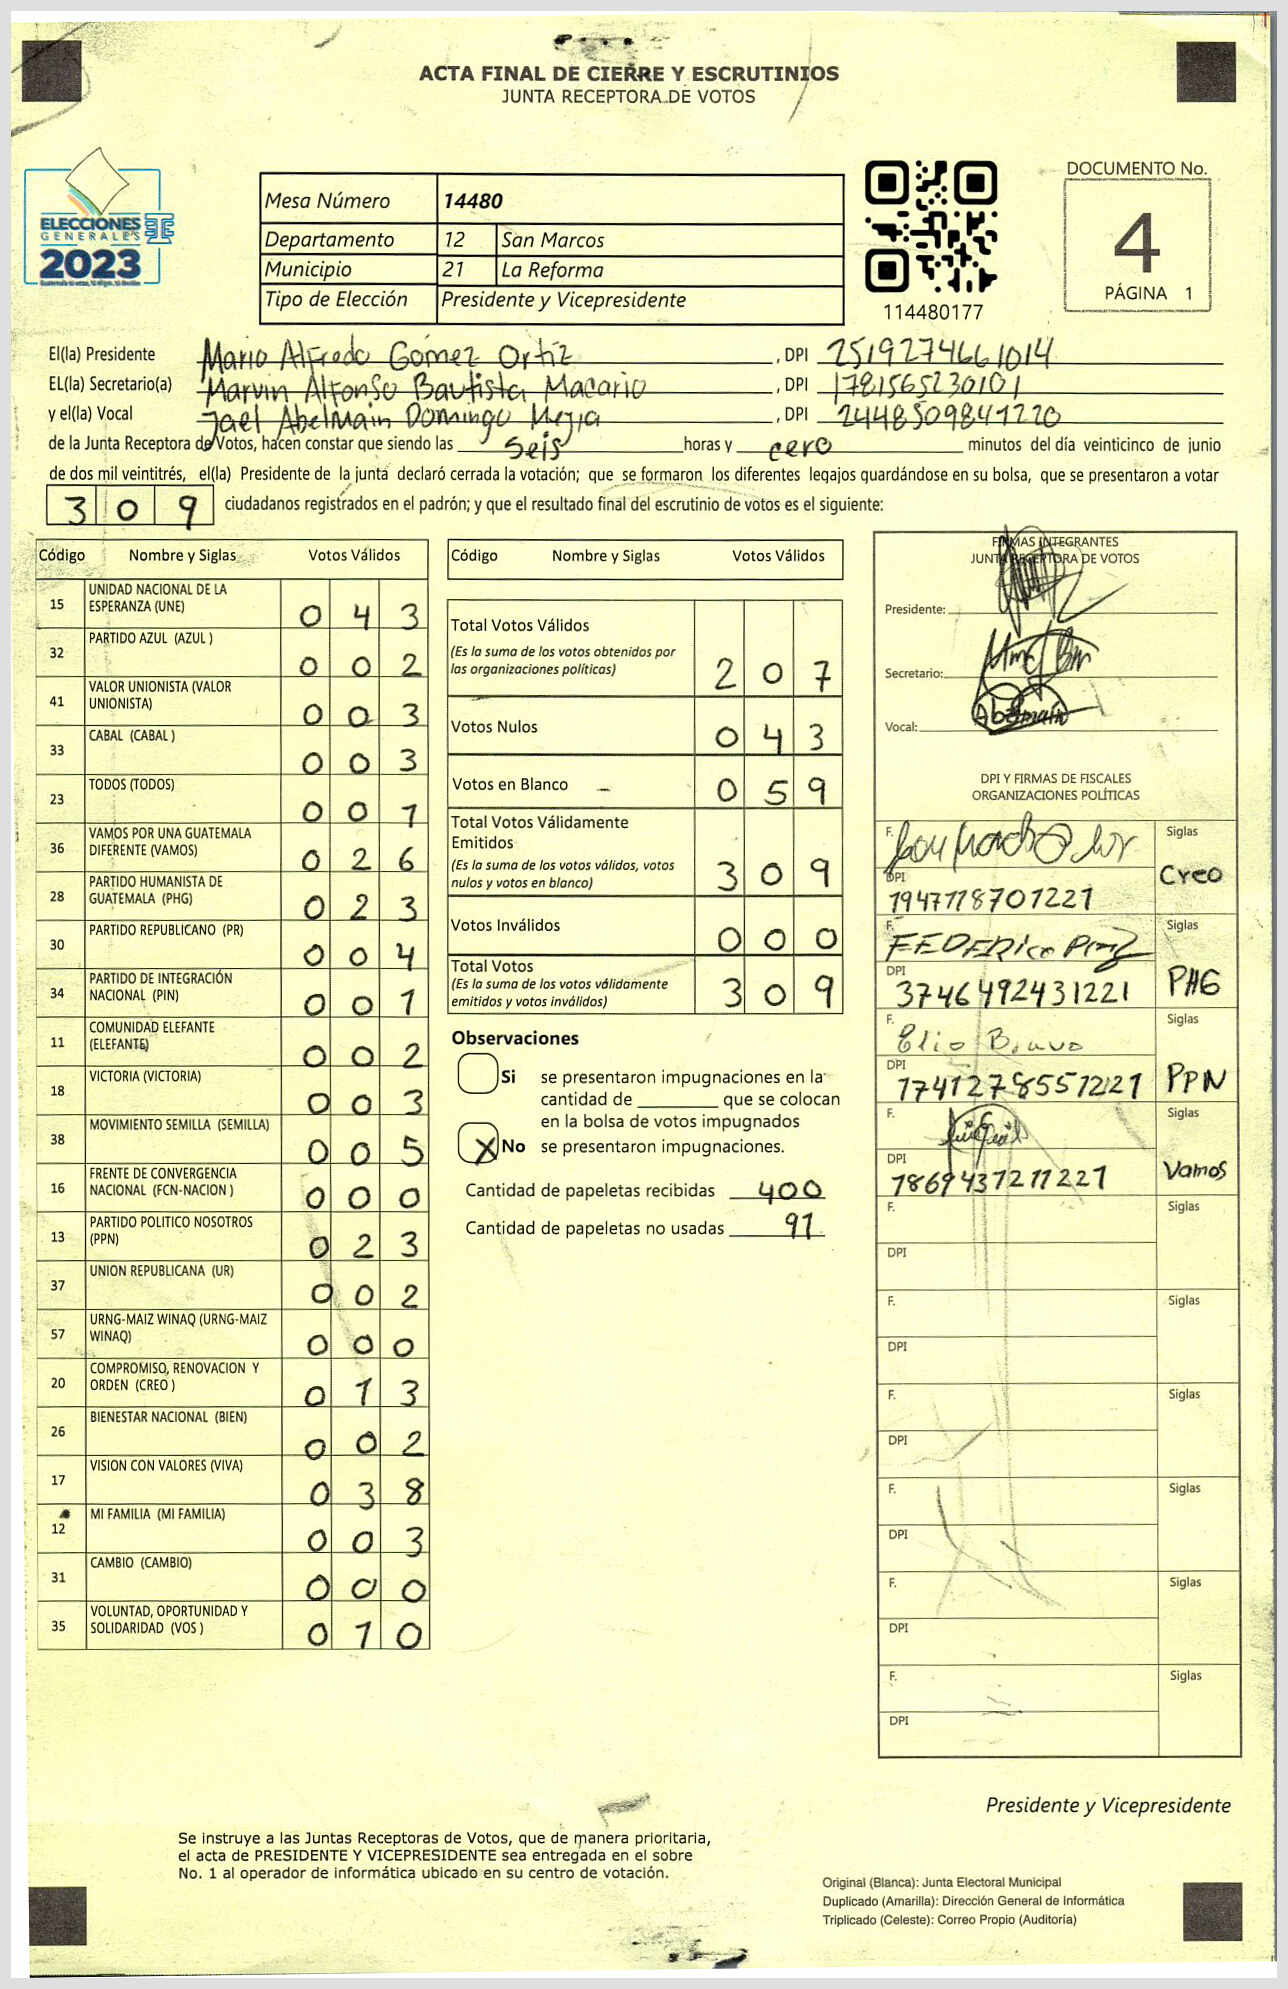 ACTA FINAL DE CIERRE Y ESCRUTINIOS
JUNTA RECEPTORA DE VOTOS
ELECCIONES
GENERALES
2023
Mesa Número 14480
Departamento 12 San Marcos
Municipio 21 La Reforma
Tipo de Elección Presidente y Vicepresidente
114480177
DOCUMENTO No.
4
PÁGINA 1
El(la) Presidente Mario Alfredo Gómez Ortíz , DPI 2519274661014
EL(la) Secretario(a) Marvin Alfonso Bautista Macario , DPI 1781565230101
y el(la) Vocal Jael Abelmain Domingo Mejia , DPI 2448509841220
de la Junta Receptora de Votos, hacen constar que siendo las seis horas y cero minutos del día veinticinco de junio
de dos mil veintitrés, el(la) Presidente de la junta declaró cerrada la votación; que se formaron los diferentes legajos guardándose en su bolsa, que se presentaron a votar
309 ciudadanos registrados en el padrón; y que el resultado final del escrutinio de votos es el siguiente:
Código Nombre y Siglas Votos Válidos
15 UNIDAD NACIONAL DE LA
ESPERANZA (UNE) 0 4 3
32 PARTIDO AZUL (AZUL ) 0 0 2
41 VALOR UNIONISTA (VALOR
UNIONISTA) 0 0 3
33 CABAL (CABAL ) 0 0 3
23 TODOS (TODOS) 0 0 1
36 VAMOS POR UNA GUATEMALA
DIFERENTE (VAMOS) 0 2 6
28 PARTIDO HUMANISTA DE
GUATEMALA (PHG) 0 2 3
30 PARTIDO REPUBLICANO (PR) 0 0 4
34 PARTIDO DE INTEGRACIÓN
NACIONAL (PIN) 0 0 1
11 COMUNIDAD ELEFANTE
(ELEFANTE) 0 0 2
18 VICTORIA (VICTORIA) 0 0 3
38 MOVIMIENTO SEMILLA (SEMILLA) 0 0 5
16 FRENTE DE CONVERGENCIA
NACIONAL (FCN-NACION ) 0 0 0
13 PARTIDO POLITICO NOSOTROS
(PPN) 0 2 3
37 UNION REPUBLICANA (UR) 0 0 2
57 URNG-MAIZ WINAQ (URNG-MAIZ
WINAQ) 0 0 0
20 COMPROMISO, RENOVACION Y
ORDEN (CREO ) 0 1 3
26 BIENESTAR NACIONAL (BIEN) 0 0 2
17 VISION CON VALORES (VIVA) 0 3 8
12 MI FAMILIA (MI FAMILIA) 0 0 3
31 CAMBIO (CAMBIO) 0 0 0
35 VOLUNTAD, OPORTUNIDAD Y
SOLIDARIDAD (VOS ) 0 1 0
Código Nombre y Siglas Votos Válidos
Total Votos Válidos
(Es la suma de los votos obtenidos por
las organizaciones políticas) 2 0 7
Votos Nulos 0 4 3
Votos en Blanco 0 5 9
Total Votos Válidamente
Emitidos
(Es la suma de los votos válidos, votos
nulos y votos en blanco) 3 0 9
Votos Inválidos 0 0 0
Total Votos
(Es la suma de los votos válidamente
emitidos y votos inválidos) 3 0 9
Observaciones
Si se presentaron impugnaciones en la
cantidad de ________ que se colocan
en la bolsa de votos impugnados
X No se presentaron impugnaciones.
Cantidad de papeletas recibidas 400
Cantidad de papeletas no usadas 91
FIRMAS INTEGRANTES
JUNTA RECEPTORA DE VOTOS
Presidente:
Secretario:
Vocal: Abelmain
DPI Y FIRMAS DE FISCALES
ORGANIZACIONES POLÍTICAS
F. Siglas
DPI 1947118701221 Creo
F. FEDERICO Siglas
DPI 3746492431221 PHG
F. Elio Bravo Siglas
DPI 1741278551221 PPN
F. Siglas
DPI 1869437211221 Vamos
F. Siglas
DPI
F. Siglas
DPI
F. Siglas
DPI
F. Siglas
DPI
F. Siglas
DPI
F. Siglas
DPI
Presidente y Vicepresidente
Se instruye a las Juntas Receptoras de Votos, que de manera prioritaria,
el acta de PRESIDENTE Y VICEPRESIDENTE sea entregada en el sobre
No. 1 al operador de informática ubicado en su centro de votación.
Original (Blanca): Junta Electoral Municipal
Duplicado (Amarilla): Dirección General de Informática
Triplicado (Celeste): Correo Propio (Auditoría)